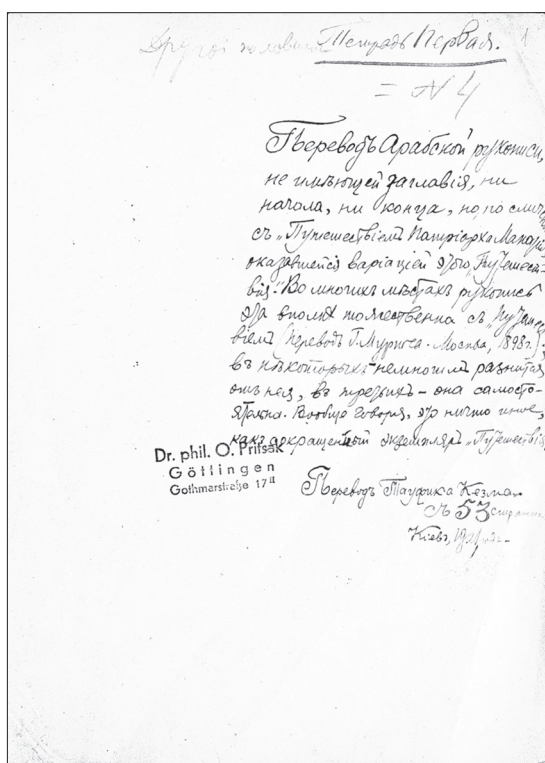 Тетрадь Первая. 1
= N 4
Переводъ Арабской рукописи,
не имѣющей заглавія, ни
начала, ни конца, но, по слич
съ „Путешествіемъ Патріарха Макарі
оказавшейся варіаціей этого „Путешест-
вія". Во многихъ мѣстахъ рукопись
эта вполнѣ тожественна съ „Путешест
віемъ (переводъ Г. Муркоса. Москва, 1898г.)
въ нѣкоторыхъ немногимъ разнится
отъ нея, въ - она самосто-
ятельна. Вообще говоря, это ничто иное,
какъ сокращенный экземпляръ „Путешествія
Dr. phil. O. Pritsak
Göttingen
Gothmarstraße 17 II
Переводъ Тауфика Кезма
53
Кіевъ,